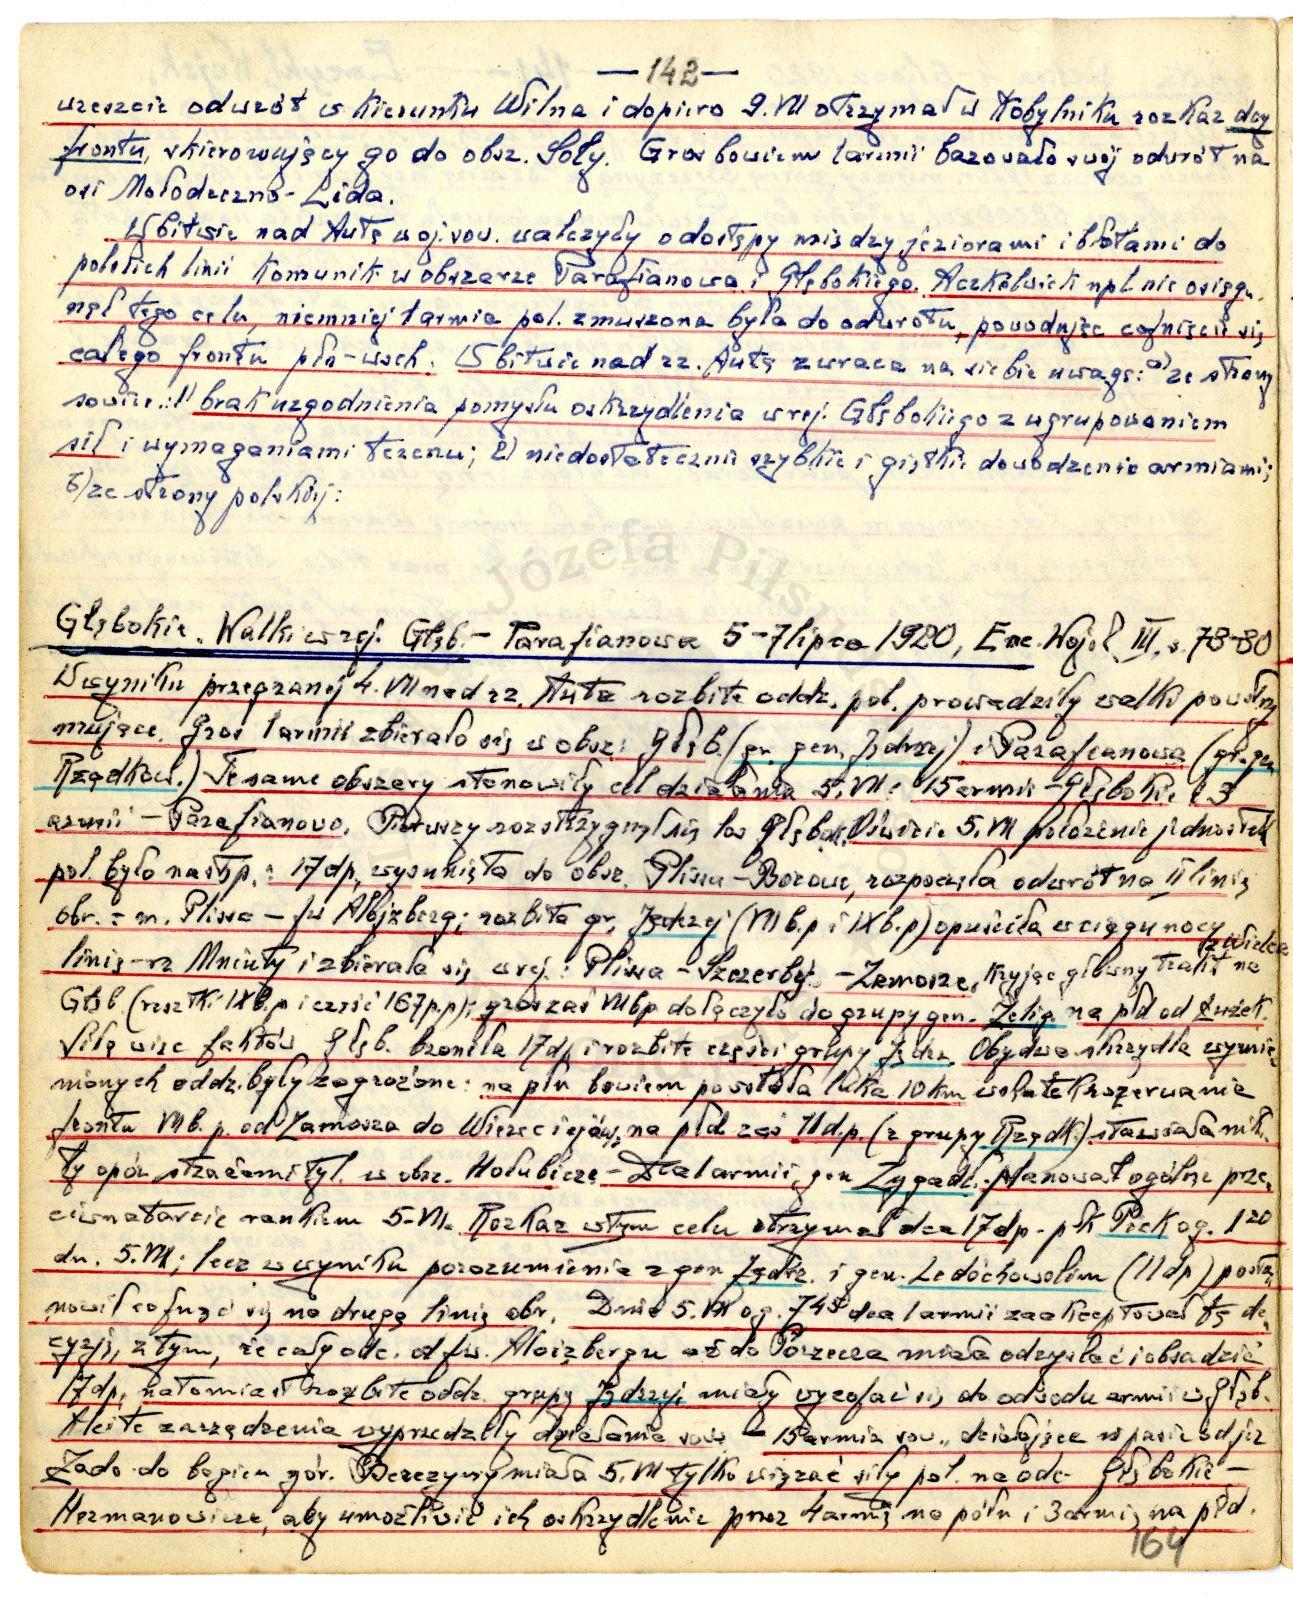 —142—
wreszcie odwrót w kierunku Wilna i dopiero 9.VII otrzymał w Kobylniku rozkaz dcy
frontu, skierowujący go do obsz. Soły. Gros bowiem 1 armii bazowało swój odwrót na
osi Mołodeczno-Lida.
W bitwie nad Autą woj. sow. walczyły o dostępy między jeziorami i błotami do
polskich linii komunik. w obszarze Parafianowa i Głębokiego. Aczkolwiek npl. nie osiągn-
nął tego celu, niemniej 1 armia pol. zmuszona była do odwrotu, powodując cofnięcie się
całego frontu płn-wsch. W bitwie nad rz. Autą zwraca na siebie uwagę: a) ze strony
sowiec.: 1) brak uzgodnienia pomysłu oskrzydlenia w rej. Głębokiego z ugrupowaniem
sił i wymaganiami terenu; 2) niedostatecznie szybkie i giętkie dowodzenie armiami;
b) ze strony polskiej:
Józefa Piłs
Głębokie. Walki w rej. Głęb. - Parafianowa 5-7 lipca 1920, Enc. Wojsk. III, s. 78-80
W wyniku przegranej 4.VII nad rz. Auta rozbite oddz. pol. prowadziły walki powstrzy
mujące. Gros 1 armii zbierało się w obsz: Głęb. (gr. gen. Jędrzej) i Parafianowa (gr. gen
Rządkow.) Te same obszary stanowiły cel działania 5.VII: 15 armii - Głębokie i 3
armii - Parafianowo. Pierwszy rozstrzygnął się los Głębok. O świcie 5.VII położenie jednostek
pol. było następ.: 17 dp, wysunięta do obsz. Plissa - Borowe, rozpoczęła odwrót na II linię
obr. = m. Plissa - fw Alojzberg; rozbita gr. Jędrzej (VII b.p i IX b.p) opuściła w ciągu nocy
linię - rz Mniuty i zbierała się w rej.: Plissa - Szczerby - Zamosze, kryjąc główny trakt na
Głęb. (resztki IX b.p i część 167 p.p); gros zaś VII bp dołączyło do grupy gen. Żelig. na płd od Łużek.
Siłą więc faktów Głęb. broniła 17 dp i rozbite części grupy Jędrz. Obydwa skrzydła wymie-
nionych oddz. były zagrożone: na płn bowiem powstała luka 10 km wskutek rozerwania
frontu VII b. p. od Zamosza do Wierec , na płd. zaś 11 d.p. (z grupy Rządk.) stawiała nik-
ły opór strażami tyl. w obsz. Hołubicze - Dca 1 armii, gen Zygadł. planował ogólne prze-
ciwnatarcie rankiem 5.VII. Rozkaz w tym celu otrzymał dca 17 dp. - płk Pick og. 1²⁰
dn. 5.VII; lecz w wyniku porozumienia z gen Jędrz. i gen. Ledóchowskim (11 dp) posta-
nowił cofnąć się na drugą linię obr. Dnia 5.VII o g. 7⁴⁵ dca 1 armii zaakceptował tę de-
cyzję, z tym, że cały odc. od fw. Alojzbergu aż do Porzecza miała odzyskać i obsadzić
17 dp, natomiast rozbite oddz. grupy Jędrzej miały wycofać się do odwodu armii w Głęb.
Ale i te zarządzenia wyprzedziły działania sow. - 15 armia sow., działające w pasie od jez
Żado do bagien gór. Berezyny miała 5.VII tylko wiązać siły pol. na odc. Głębokie -
Hermanowicze, aby umożliwić ich oskrzydlenie przez 4 armię na półn i 3 armię na płd.
164